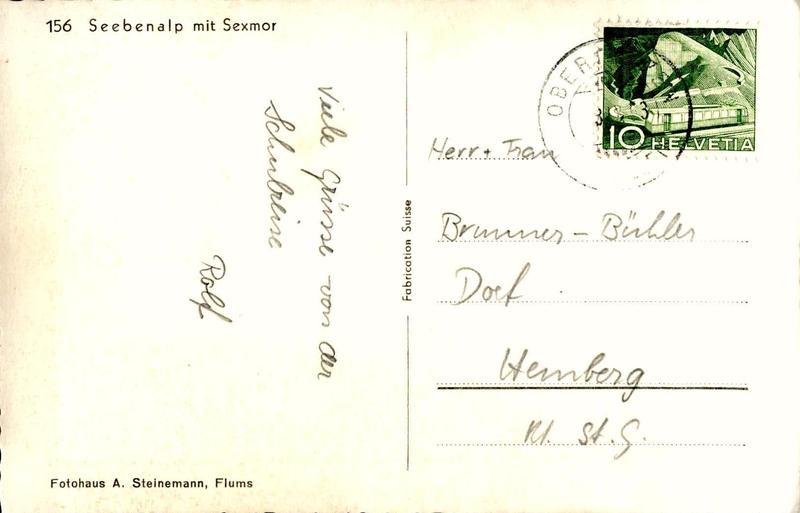 156 Seebenalp mit Sexmor
Viele Grüsse von der
Schulreise
Rolf
Fotohaus A. Steinemann, Flums
Fabrication Suisse
10 HELVETIA
Herr + Frau
Brunner - Bühler
Dorf
Hemberg
Kt. St. G.